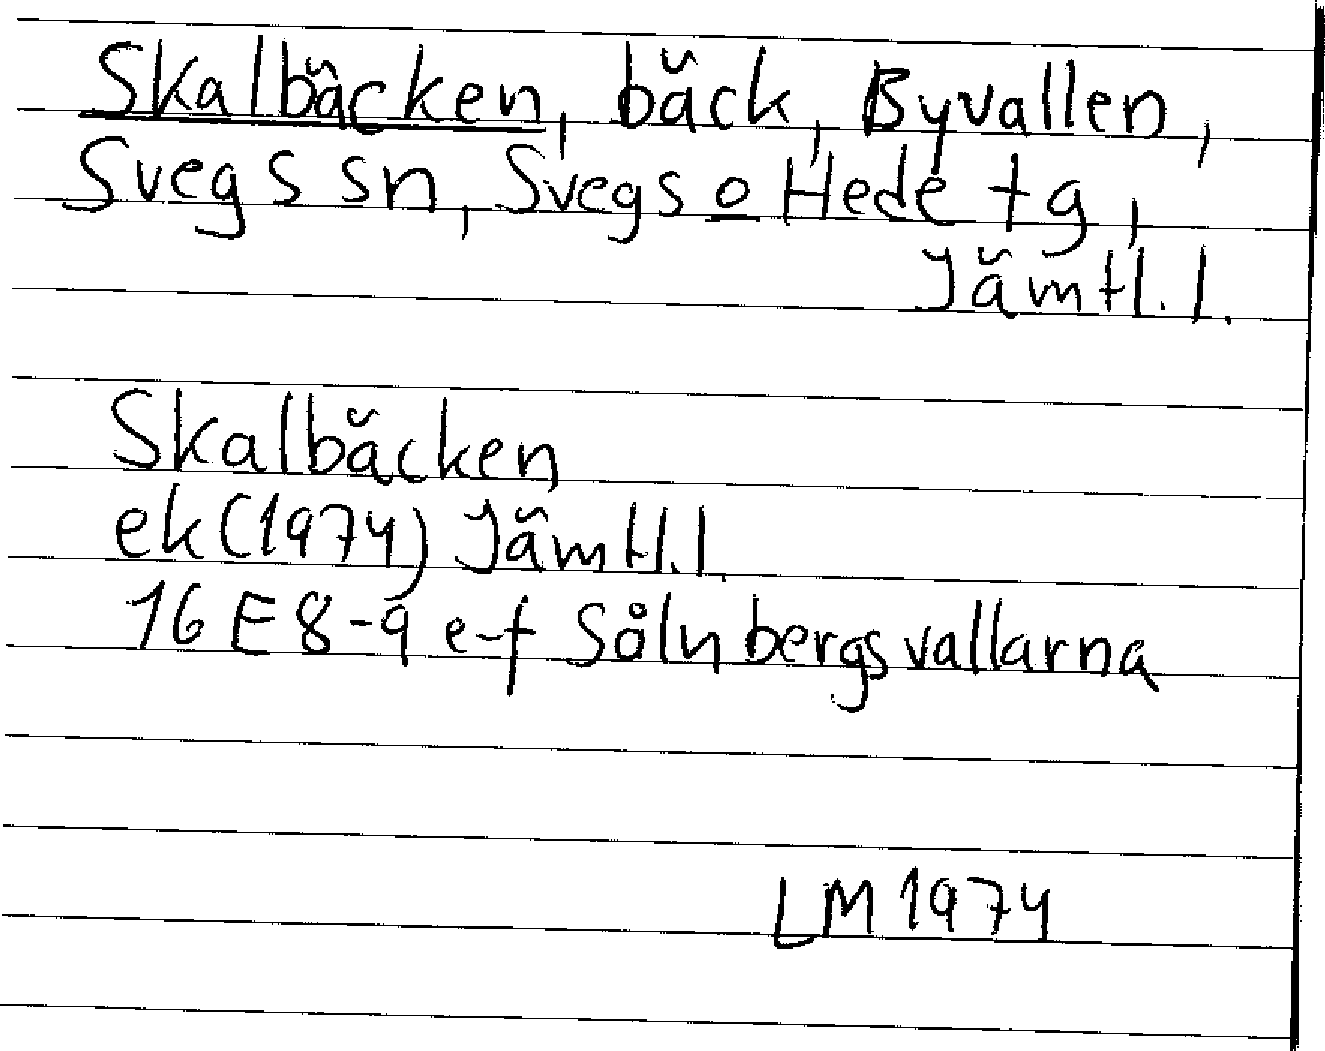 Skalbäcken, bäck, Byvallen,
Svegs sn, Svegs o Hede tg,
Jämtl. l.
Skalbäcken
ek (1974) Jämtl. l.
16 E 8-9 e-f Sålnbergsvallarna
LM 1974